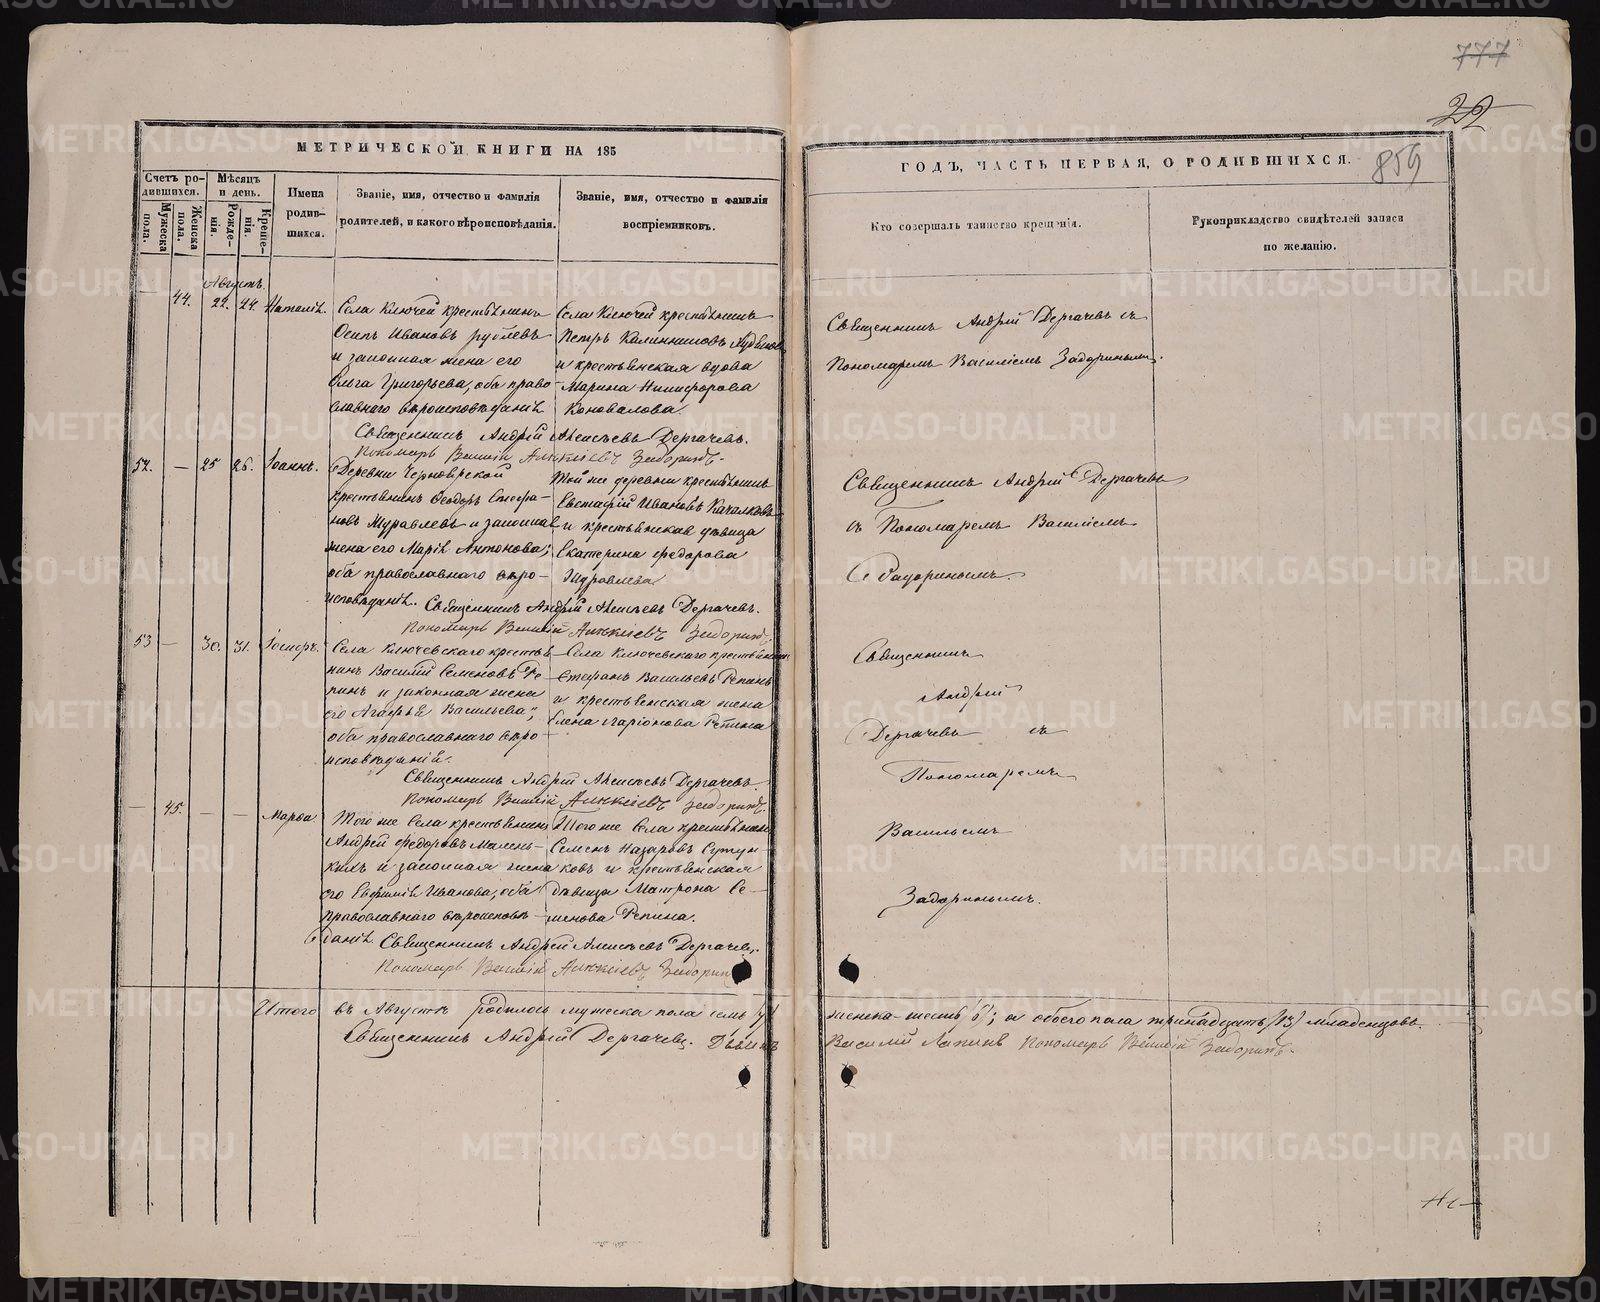 777
22
859
МЕТРИЧЕСКОЙ КНИГИ НА 185
ГОДЪ, ЧАСТЬ ПЕРВАЯ, О РОДИВШИХСЯ.
Счетъ родившихся.
Мужеска пола.
Женска пола.
Мѣсяцъ и день.
Рожденія.
Крещенія.
Имена родившихся.
Званіе, имя, отчество и фамилія
родителей, и какого вѣроисповѣданія.
Званіе, имя, отчество и фамилія
воспріемниковъ.
Кто совершалъ таинство крещенія.
Рукоприкладство свидѣтелей записи
по желанію.
Августъ.
44. 22. 24. Наталія.
Села Ключей крестьянинъ
Осипъ Ивановъ
и законная жена его
Ольга Григорьева, оба право-
славнаго вѣроисповѣданія
Села Ключей крестьянинъ
Петръ Калинниковъ
и крестьянская вдова
Марина Никифорова
Коновалова.
Священникъ Андрей Дергачевъ съ
Пономаремъ Василіемъ Задоринымъ.
Священникъ Андрей Алексѣевъ Дергачевъ.
Пономарь Василій Задоринъ.
52. — 25 26. Іоаннъ.
Деревни Черноярской
крестьянинъ Ѳеодоръ Стефа-
новъ Журавлевъ и законная
жена его Марія Антонова;
оба православнаго вѣро-
исповѣданія.
Той же деревни крестьянинъ
Евстафій Ивановъ Качалковъ
и крестьянская дѣвица
Екатерина Федорова
Журавлева
Священникъ Андрей Дергачевъ
съ Пономаремъ Василіемъ
Задоринымъ.
Священникъ Андрей Алексѣевъ Дергачевъ.
Пономарь Василій Задоринъ.
53 — 30. 31. Іосифъ.
Села Ключевскаго крестья-
нинъ Василій Семеновъ Ре-
пинъ и законная жена
его Агафья Васильева;
оба православнаго вѣро-
исповѣданія.
Села Ключевскаго крестьянинъ
Стефанъ Васильевъ Репинъ
и крестьянская жена
Елена Ларіонова Репина
Священникъ
Андрей
Дергачевъ съ
Пономаремъ
Васильемъ
Задоринымъ.
Священникъ Андрей Алексѣевъ Дергачевъ.
Пономарь Василій Задоринъ.
— 45. — — Марѳа
Того же Села крестьянинъ
Андрей Федоровъ Малень-
кихъ и законная жена
его Евфимія Иванова, оба
православнаго вѣроисповѣ-
данія.
Того же Села крестьянинъ
Семенъ Назаровъ Сутун-
ковъ и крестьянская
дѣвица Матрона Се-
менова Репина.
Священникъ Андрей Алексѣевъ Дергачевъ.
Пономарь Василій Задоринъ
Итого въ Августѣ родилось мужеска пола семь /7/
женска-шесть /6/; а обоего пола тринадцать /13/ младенцовъ.
Священникъ Андрей Дергачевъ. Дьячекъ
Василій Лапинъ Пономарь Василій Задоринъ.
METRIKI.GASO-URAL.RU